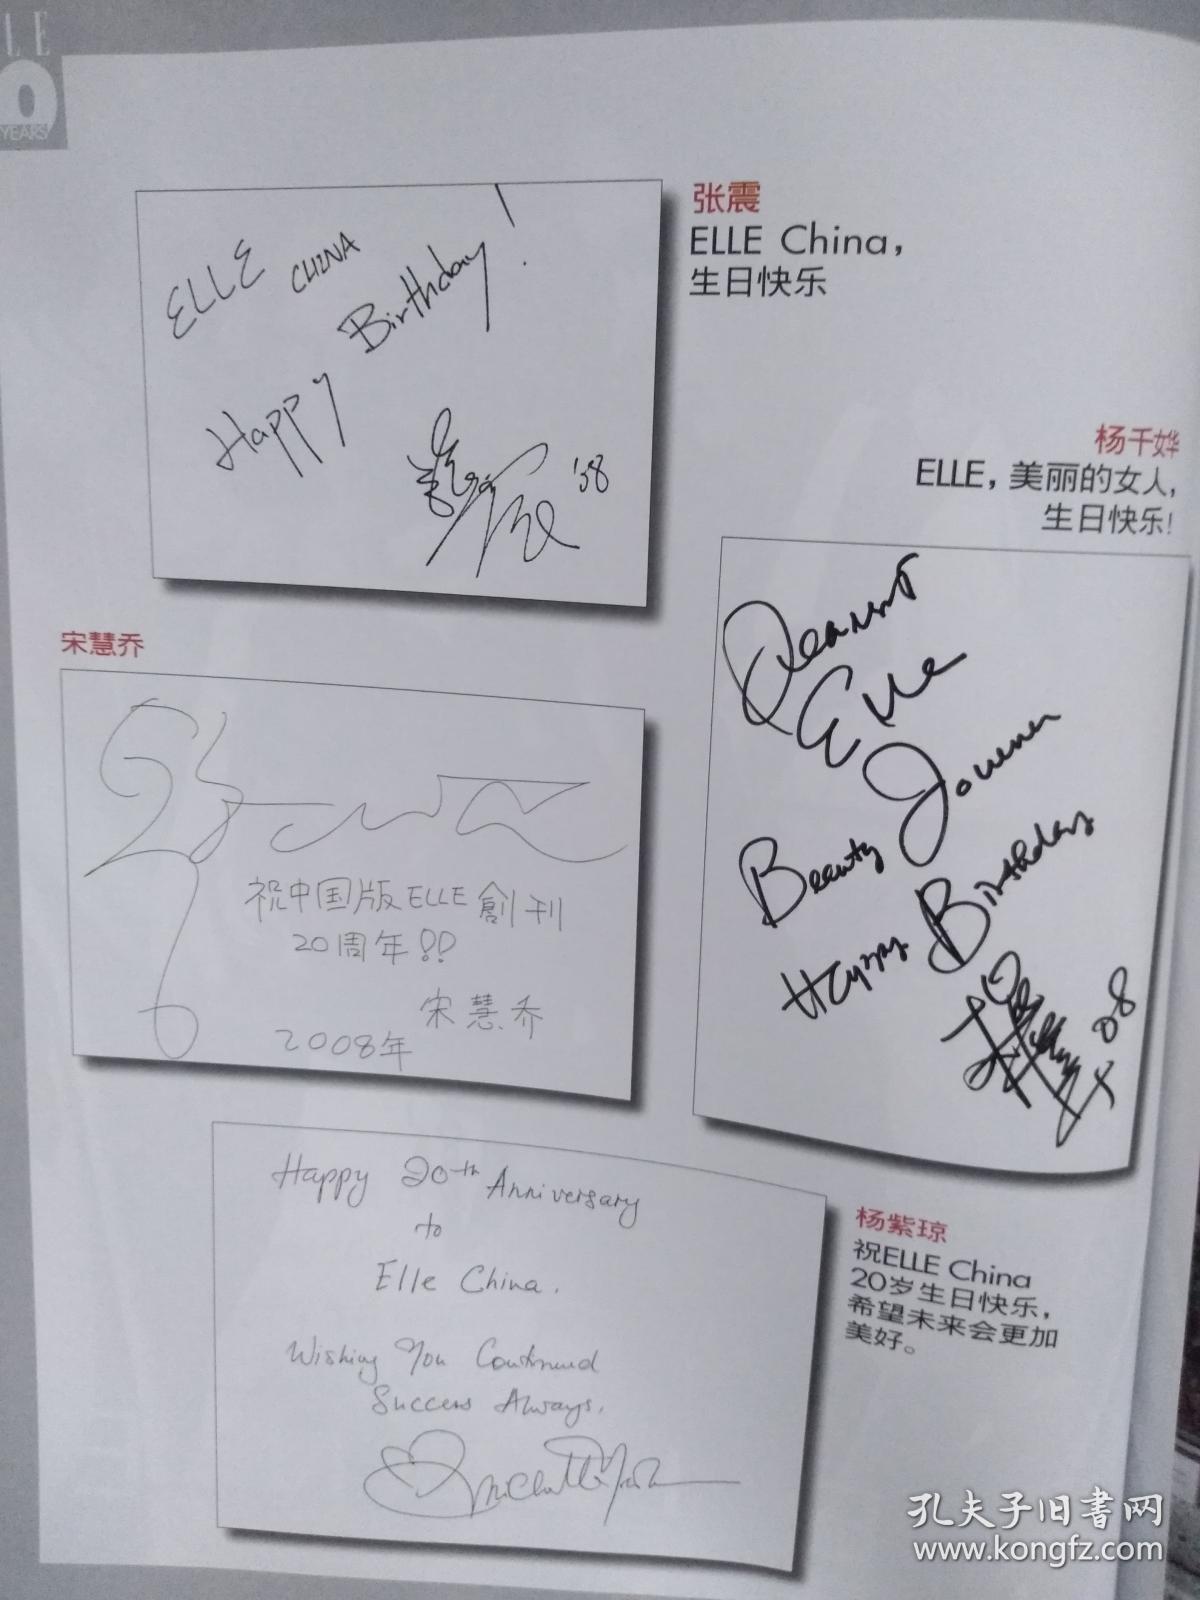 LE
0
YEARS
ELLE CHINA
Happy Birthday!
'08
张震
ELLE China,
生日快乐
杨千嬅
ELLE, 美丽的女人,
生日快乐!
Dearest
Elle
Beauty
Happy Birthday
08
宋慧乔
祝中国版ELLE創刊
20周年!!
宋慧乔
2008年
Happy 20th Anniversary
to
Elle China.
Wishing You Continued
Success Always.
杨紫琼
祝ELLE China
20岁生日快乐,
希望未来会更加
美好。
孔夫子旧書网
www.kongfz.com